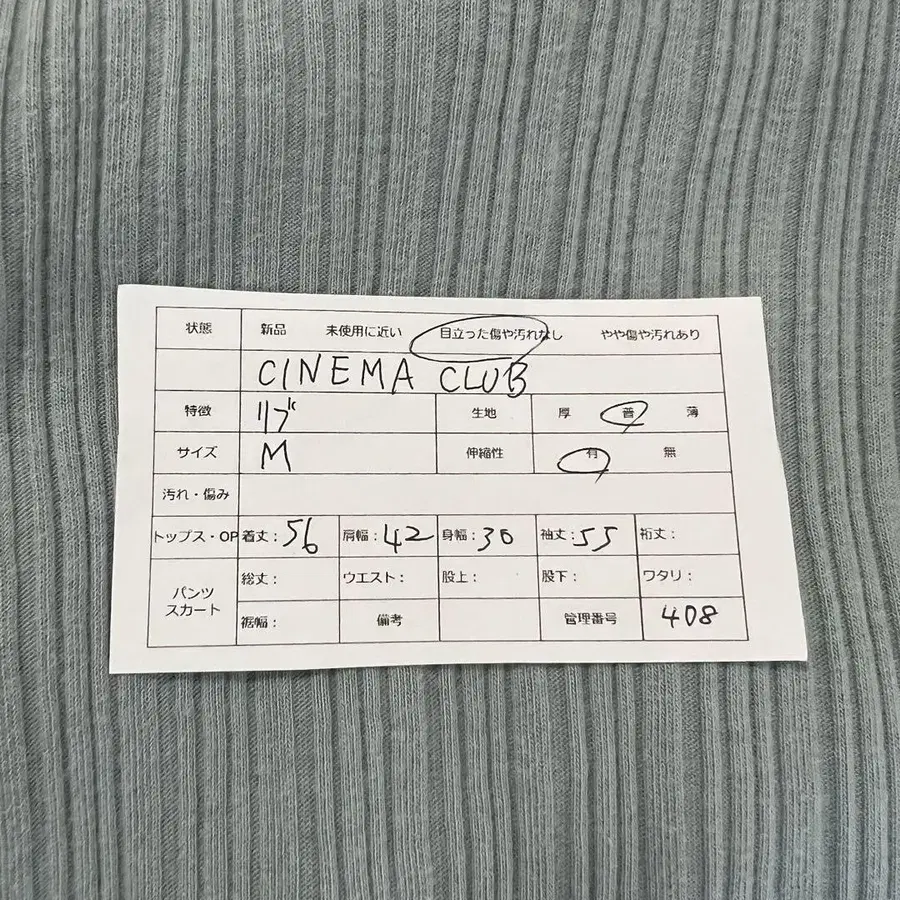 状態 新品 未使用に近い 目立った傷や汚れなし やや傷や汚れあり
CINEMA CLUB
特徴 リブ 生地 厚 普 薄
サイズ M 伸縮性 有 無
汚れ・傷み
トップス・OP 着丈：56 肩幅：42 身幅：36 袖丈：55 裄丈：
パンツ スカート 総丈： ウエスト： 股上： 股下： ワタリ：
裾幅： 備考 管理番号 408